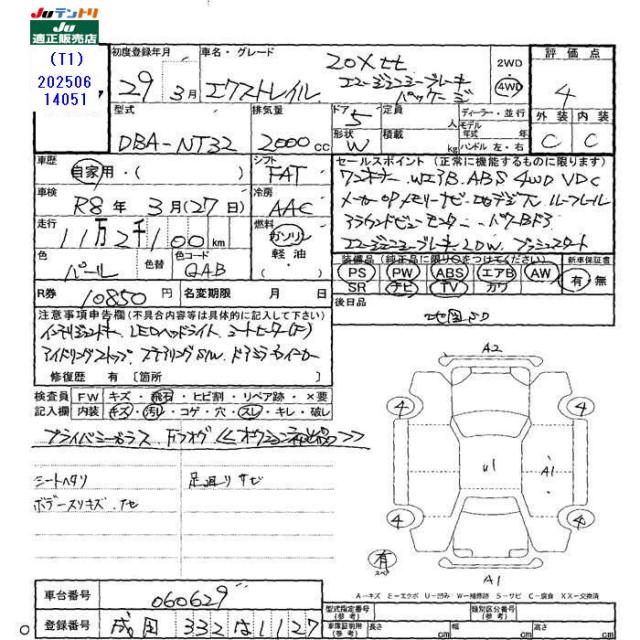 Juテントリ
Ju
適正販売店
(T1)
202506
14051
初度登録年月
車名・グレード
評価点
29年3月 エクストレイル
20Xtt
エマージェンシーブレーキ
パッケージ
2WD
4WD
4
外装 内装
C C
型式
排気量
ドア
形状
定員
積載
ディーラー・並行
モデル
年式 年
ハンドル 左・右
DBA-NT32
2000cc
5
W
人
kg
車歴
シフト
セールスポイント(正常に機能するものに限ります)
自家用・( )
FAT
車検
冷房
R8年3月(27日)
AAC
走行
燃料
11万2千100km
ガソリン
軽油
( )
色
色替
色コード
パール
QAB
ワンオーナー WエアB ABS 4WD VDC
メーカーOPメモリーナビ 地デジTV ルーフレール
アラウンドビューモニター パワーBドア
エマージェンシーブレーキ LDW プッシュスタート
装備品(純正品に限り○をつけてください)
新車保証書
PS PW ABS エアB AW
SR ナビ TV カワ
有・無
R券
10850円
名変期限 月 日
後日品
地図SD
注意事項申告欄(不具合内容等は具体的に記入して下さい)
インテリジェントキー LEDヘッドライト シートヒーター(F)
アイドリングストップ ステアリングSW ドアミラーウインカー
修復歴 有 [箇所 ]
検査員
記入欄
FW キズ・飛石・ヒビ割・リペア跡・×要
内装 キズ・汚れ・コゲ・穴・スレ・キレ・破レ
プライバシーガラス
シートヘタリ
足廻りサビ
ボデースリキズ
A2
4
4
4
4
U1
A1
A1
有
A-キズ E-エクボ U-凹み W-補修跡 S-サビ C-腐食 XX-交換済
車台番号
060629
登録番号
成田 332 は 1127
型式指定番号
(参考)
類別区分番号
(参考)
車庫証明用
(参考)
長さ cm
幅 cm
高さ cm